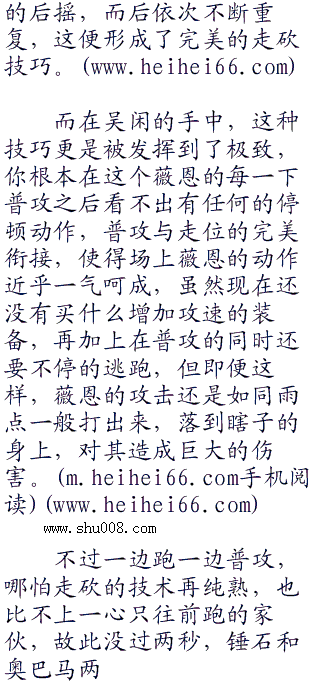 的后摇，而后依次不断重
复，这便形成了完美的走砍
技巧。(www.heihei66.com)
而在吴闲的手中，这种
技巧更是被发挥到了极致，
你根本在这个薇恩的每一下
普攻之后看不出有任何的停
顿动作，普攻与走位的完美
衔接，使得场上薇恩的动作
近乎一气呵成，虽然现在还
没有买什么增加攻速的装
备，再加上在普攻的同时还
要不停的逃跑，但即便这
样，薇恩的攻击还是如同雨
点一般打出来，落到瞎子的
身上，对其造成巨大的伤
害。(m.heihei66.com手机阅
读)(www.heihei66.com)
www.shu008.com
不过一边跑一边普攻，
哪怕走砍的技术再纯熟，也
比不上一心只往前跑的家
伙，故此没过两秒，锤石和
奥巴马两